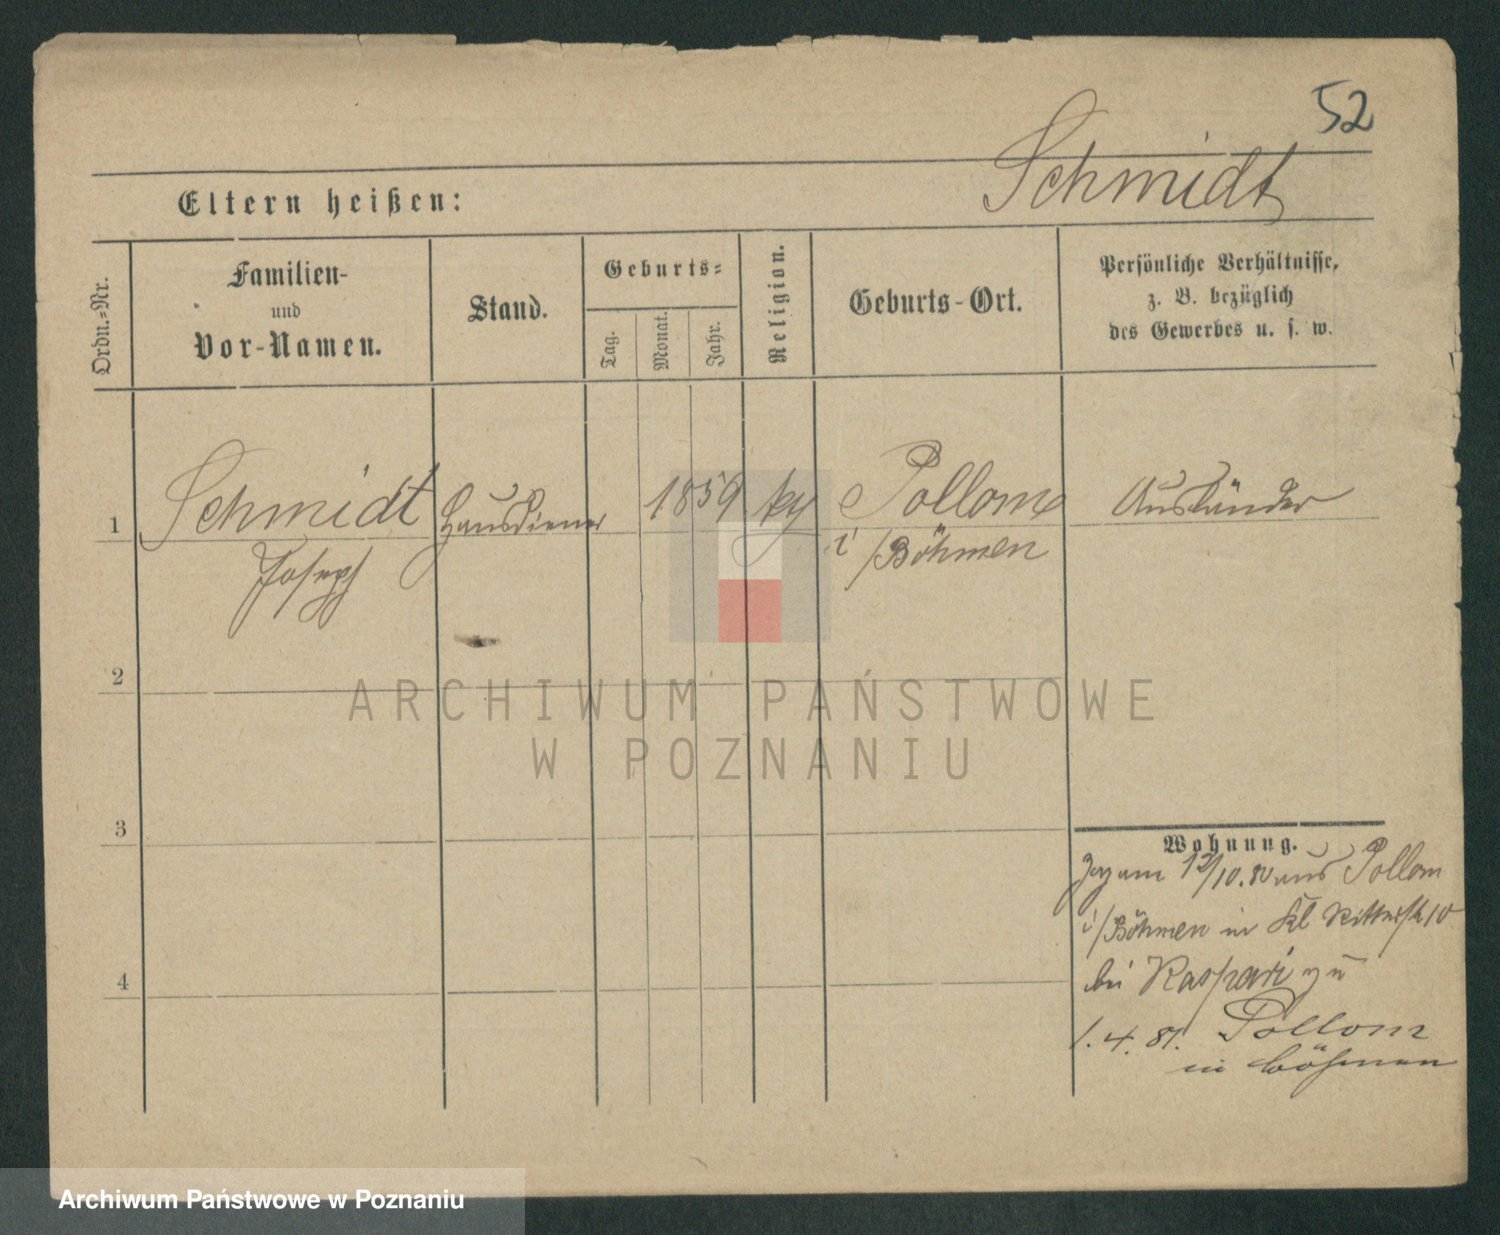 52
Schmidt
Eltern heißen:
Ordn.-Nr.
Familien-
und
Vor-Namen.
Stand.
Geburts-
Tag.
Monat.
Jahr.
Religion.
Geburts-Ort.
Persönliche Verhältnisse,
z. B. bezüglich
des Gewerbes u. s. w.
1
Schmidt
Joseph
Hausdiener
1859
Pollom
i/Böhmen
Ausländer
2
3
4
ARCHIWUM PAŃSTWOWE
W POZNANIU
Wohnung.
am 12/10.80 aus Pollom
i/Böhmen in Kl Ritterstr 10
bei Kaspari zu
1.4.81. Pollom
in Böhmen
Archiwum Państwowe w Poznaniu